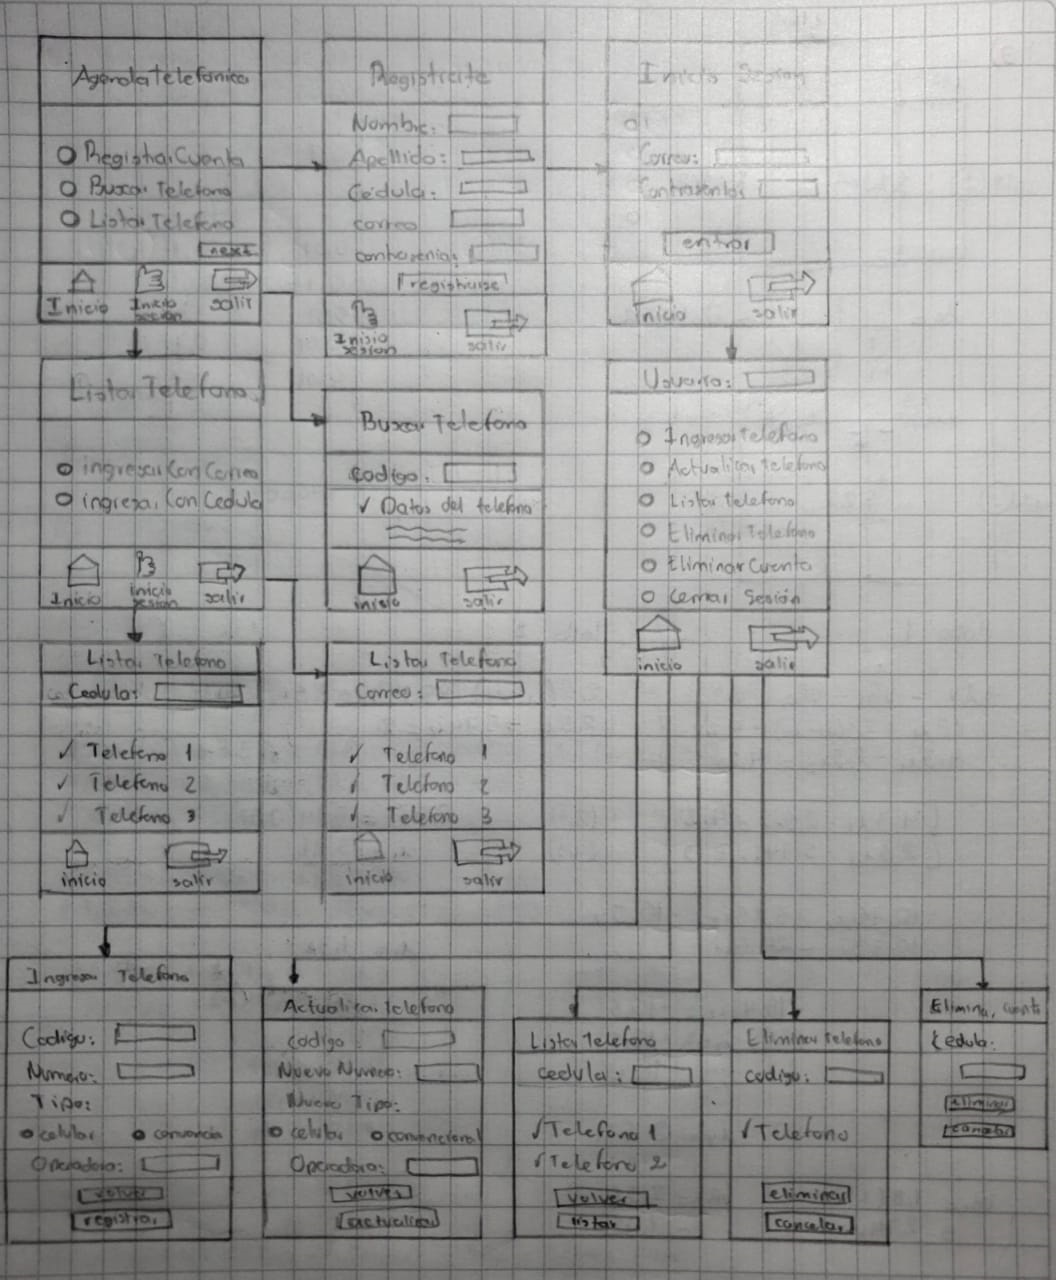 Agenda telefonica
Registrar Cuenta
Buscar Telefono
Listar Telefono
next
Inicio
Inicio sesion
salir
Registrate
Nombre:
Apellido:
Cédula:
correo
contrasenia:
registrarse
Inisio sesion
salir
Inicio Sesion
Correo:
Contrasenia:
entrar
Inicio
salir
Listar Telefono
ingresar Con Correo
ingresar Con Cedula
Inicio
inicio sesion
salir
Buscar Telefono
Codigo:
✓ Datos del telefono
inicio
salir
Usuario:
Ingresar Telefono
Actualizar telefono
Listar telefono
Eliminar Telefono
Eliminar Cuenta
Cerrar Sesión
inicio
salir
Listar Telefono
Cedula:
✓ Telefono 1
✓ Telefono 2
✓ Telefono 3
inicio
salir
Listar Telefono
Correo:
✓ Telefono 1
✓ Telefono 2
✓ Telefono 3
inicio
salir
Ingresar Telefono
Codigo:
Numero:
Tipo:
celular convencia
Operadora:
volver
registrar
Actualizar telefono
codigo
Nuevo Numero:
Nuevo Tipo:
celular convencional
Operadora:
volver
actualizar
Listar Telefono
cedula:
✓ Telefono 1
✓ Telefono 2
volver
listar
Eliminar telefono
codigo:
✓ Telefono
eliminar
cancelar
Eliminar cuenta
Cedula:
eliminar
cancelar